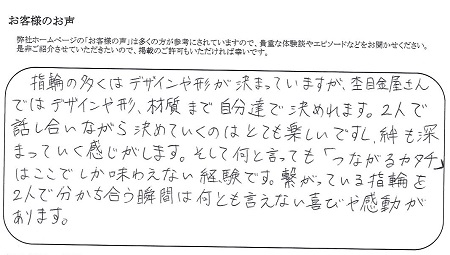 お客様のお声
弊社ホームページの「お客様の声」は多くの方が参考にされていますので、貴重な体験談やエピソードなどをお聞かせください。
是非ご紹介させていただきたいので、掲載のご許可もいただければ幸いです。
指輪の多くはデザインや形が決まっていますが、杢目金屋さん
ではデザインや形、材質まで自分達で決めれます。2人で
話し合いながら決めていくのはとても楽しいですし、絆も深
まっていく感じがします。そして何と言っても「つながるカタチ」
はここでしか味わえない経験です。繋がっている指輪を
2人で分かち合う瞬間は何とも言えない喜びや感動が
あります。